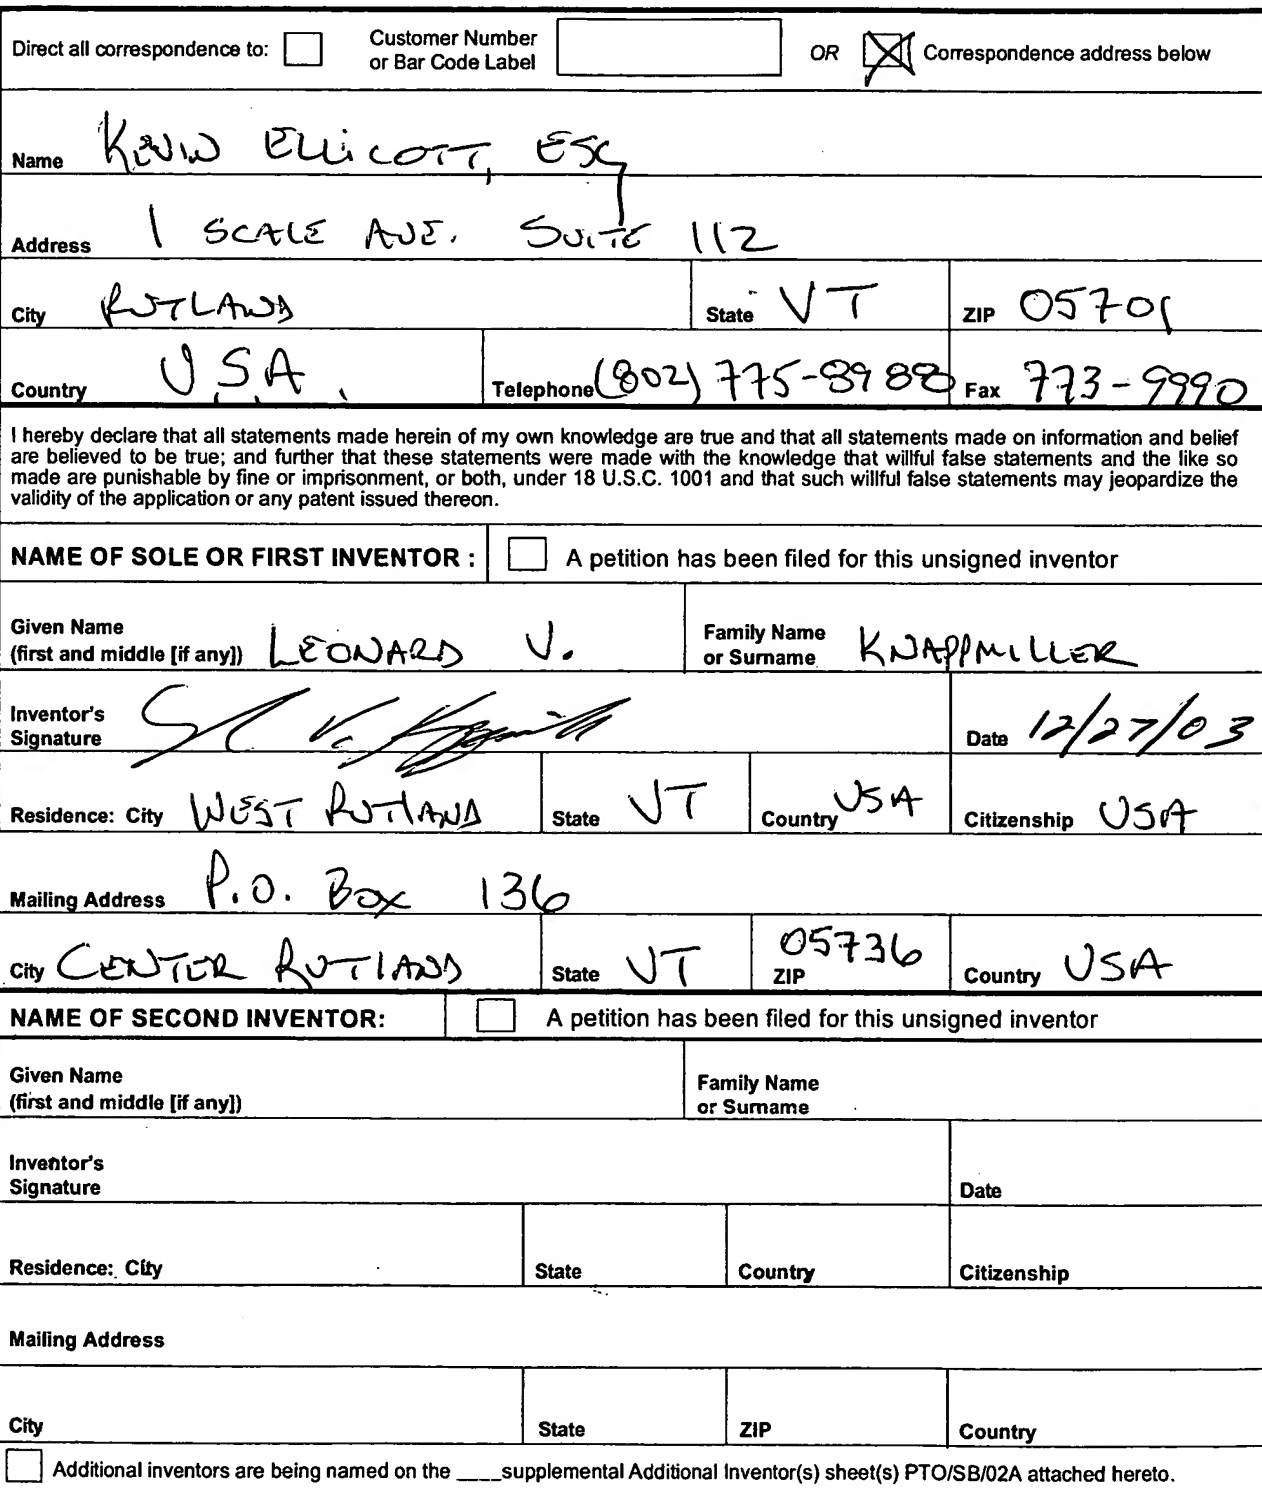 Direct all correspondence to: Customer Number or Bar Code Label OR Correspondence address below
Name KEVIN ELLICOTT, ESQ
Address 1 SCALE AVE. SUITE 112
City RUTLAND State VT ZIP 05701
Country USA Telephone (802) 775-8988 Fax 773-9990
I hereby declare that all statements made herein of my own knowledge are true and that all statements made on information and belief
are believed to be true; and further that these statements were made with the knowledge that willful false statements and the like so
made are punishable by fine or imprisonment, or both, under 18 U.S.C. 1001 and that such willful false statements may jeopardize the
validity of the application or any patent issued thereon.
NAME OF SOLE OR FIRST INVENTOR : A petition has been filed for this unsigned inventor
Given Name
(first and middle [if any]) LEONARD V. Family Name or Surname KNAPPMILLER
Inventor's
Signature Date 12/27/03
Residence: City WEST RUTLAND State VT Country USA Citizenship USA
Mailing Address P.O. Box 136
City CENTER RUTLAND State VT ZIP 05736 Country USA
NAME OF SECOND INVENTOR: A petition has been filed for this unsigned inventor
Given Name
(first and middle [if any]) Family Name or Surname
Inventor's
Signature Date
Residence: City State Country Citizenship
Mailing Address
City State ZIP Country
Additional inventors are being named on the ____supplemental Additional Inventor(s) sheet(s) PTO/SB/02A attached hereto.